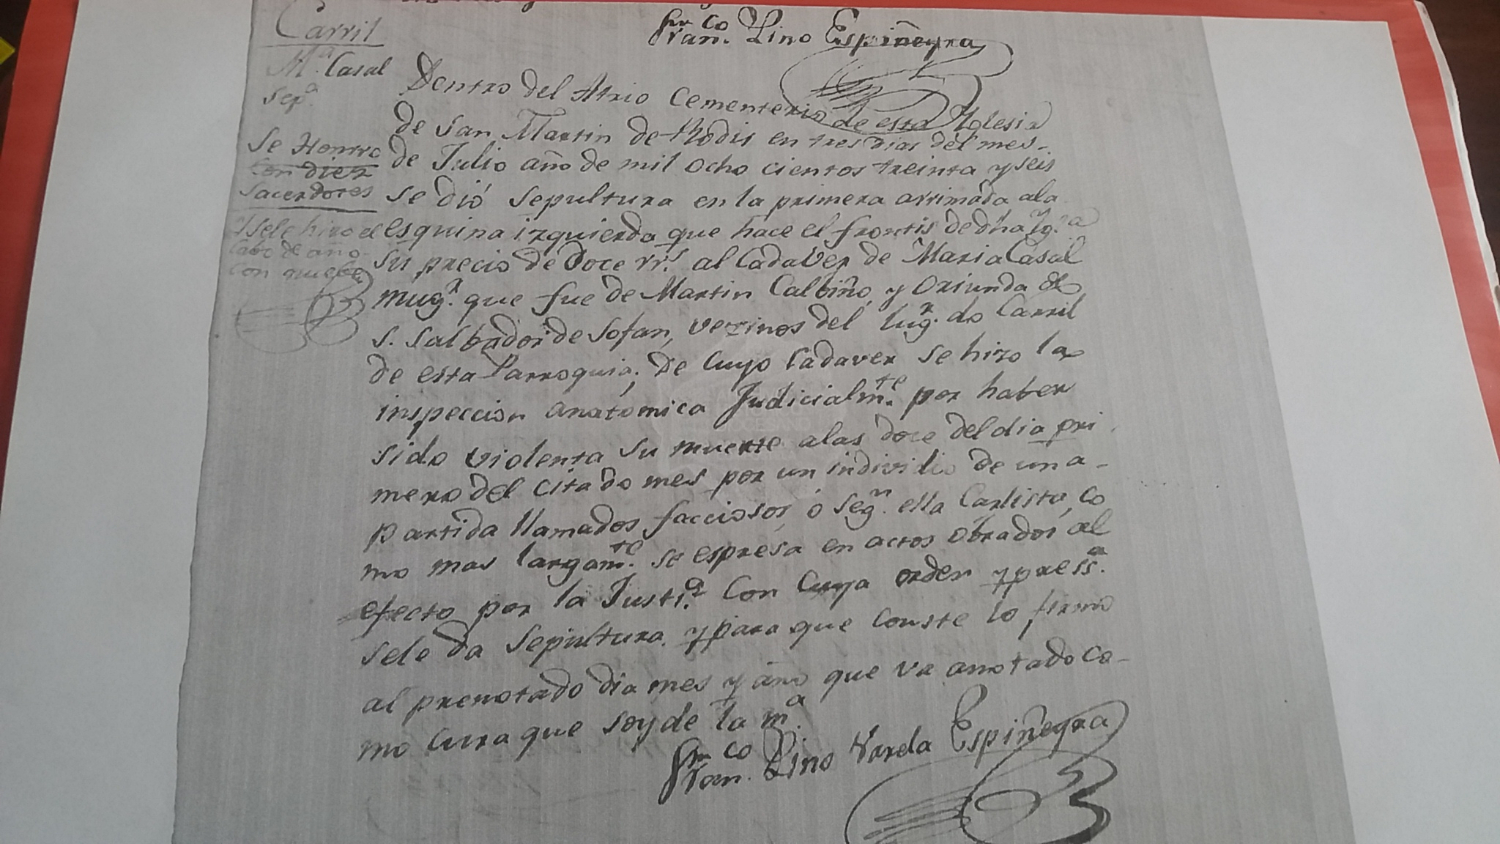 Fran.co Lino Espiñeyra
Carril
M.a Casal
Sep.a
Se Honro
con diez
sacerdotes
sele hizo el
cabo de año
con nuebe
Dentro del Atrio Cementerio de esta Yglesia
de San Martin de Rodis en tres dias del mes
de Julio año de mil ocho cientos treinta y seis
se dió sepultura en la primera arrimada ala
esquina izquierda que hace el frontis de dha Yg.a
su precio de Doce rr.s al Cadaver de Maria Casal
mug.r que fue de Martin Calbiño, y Oriunda de
S. Salbador de Sofan, vezinos del lug.r do Carril
de esta Parroquia; de cuyo Cadaver se hizo la
inspeccion anatomica Judicialm.te por haber
sido violenta su muerte alas doce del dia pri
mero del citado mes por un individuo de una-
partida llamados facciosos, ó seg.n ella Carlista, co
mo mas largam.te se espresa en actos obrados al
efecto por la Justi.a con cuya orden y press.a
sele da sepultura. y para que conste lo firmo
al prenotado dia mes y año que va anotado co-
mo cura que soy de la m.a
Fran.co Lino Varela Espiñeyra